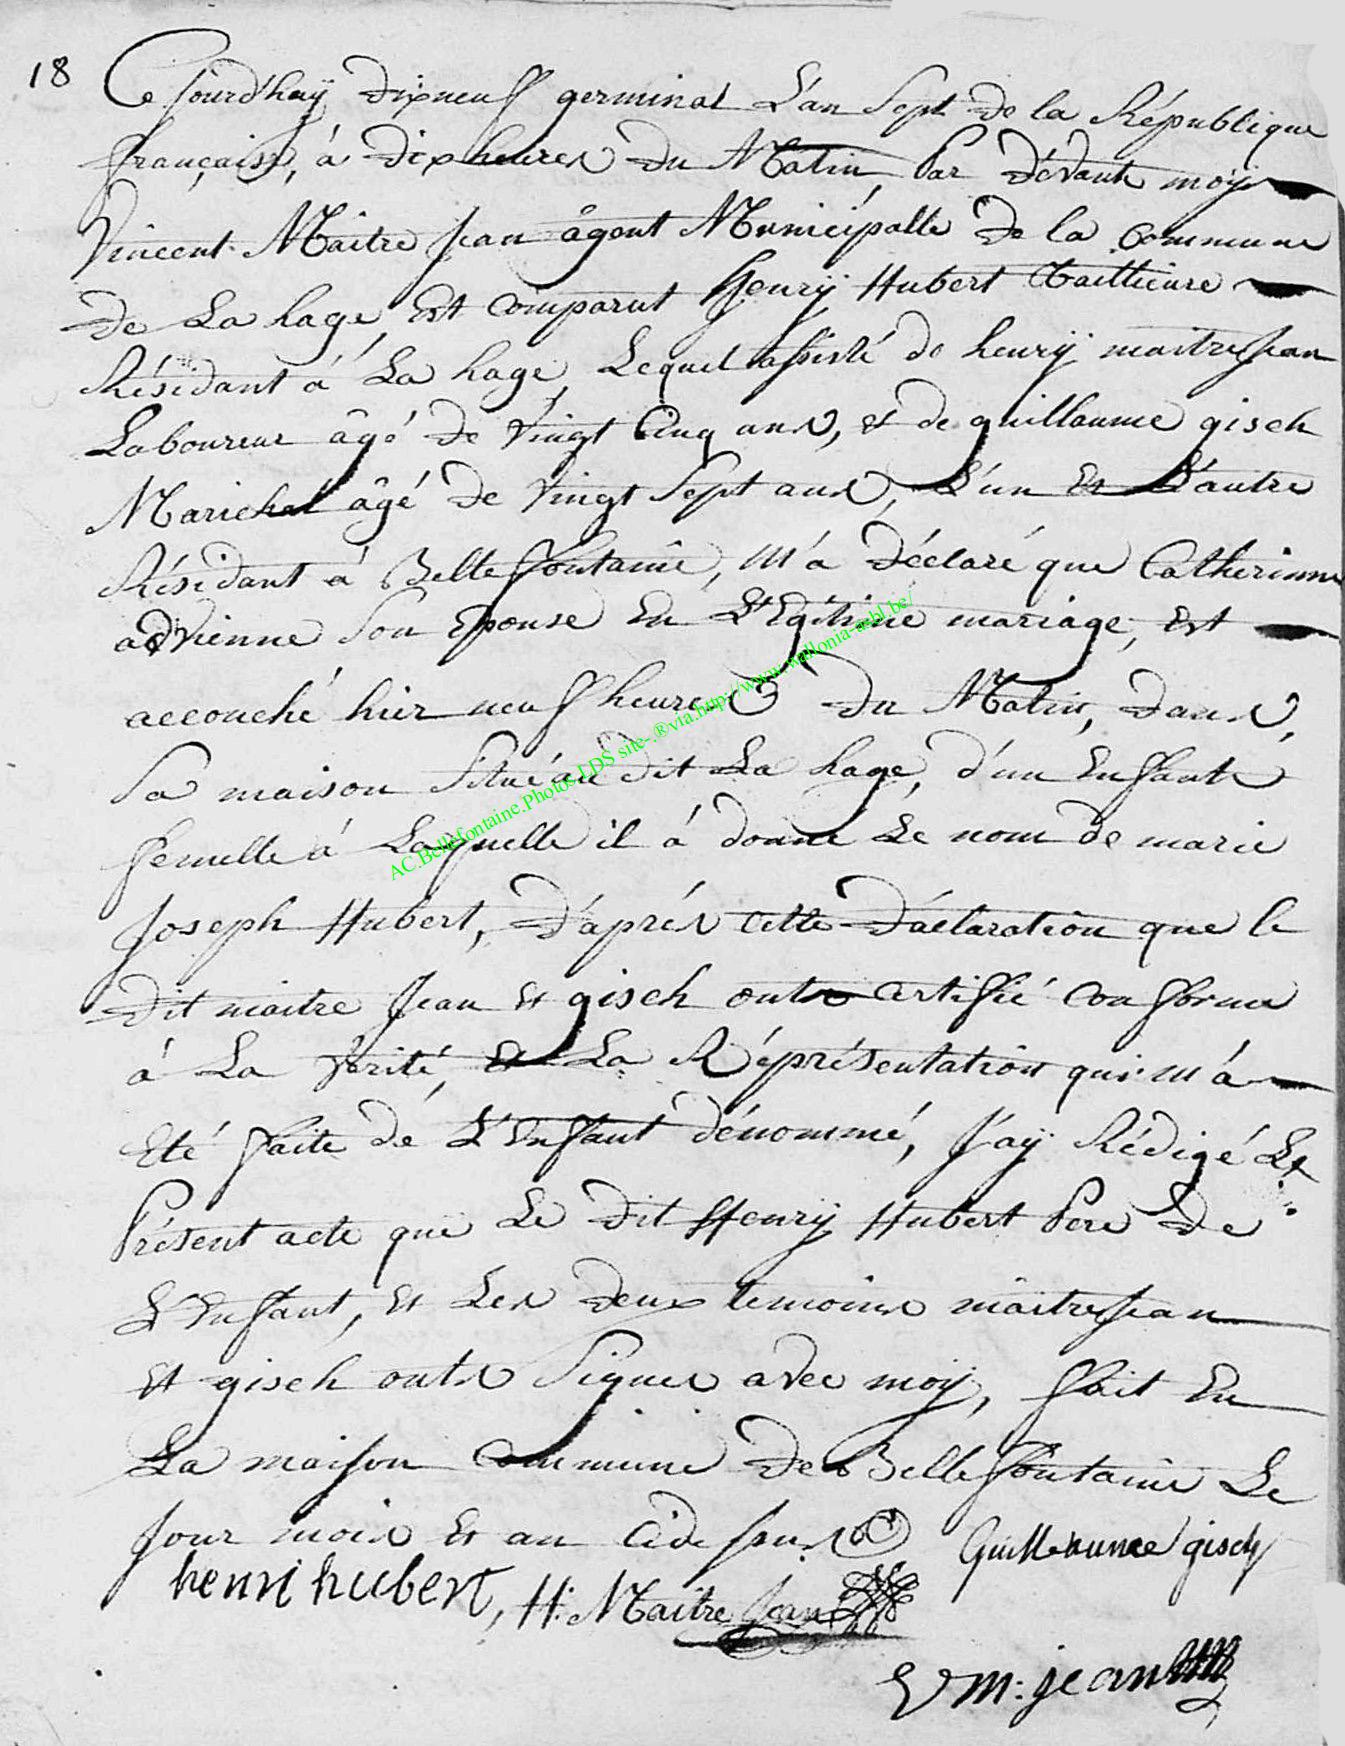 18
Ce jourdhuÿ dixneuf germinal L'an Sept de la République
française, à dix heures du Matin, Par dévant moÿ
Vincent Maitre Jean âgent Municipalle de la commune
de La hage, Est comparut Henrÿ Hubert Tailleure
Résidant á La hage, Lequel assisté de henrÿ maitrejean
Laboureur âgé de Vingt Cinq ans, et de guillaume gisch
Marichal âgé de Vingt Sept ans, L'un Et L'autre
Résidant á Bellefontaine, M'a Déclaré que Catherinne
advienne Son Epouse En L'Egitime mariage, Est
accouché hier neuf heures du Matin, dans
Sa maison Situé au dit La hage, d'un Enfant
femelle á Laquelle il á donné Le nom de marie
Joseph Hubert, d'aprés cette Déclaration que le
dit maitre Jean Et gisch onts certifié conforme
á La vérité, Et La Réprésentation qui m'á
Eté faite dé L'Enfant dénommé, J'aÿ Rédigé Le
Présent acte que Le dit Henrÿ Hubert Pere de
L'Enfant, Et Les deux temoins maitrejean
Et gisch onts Signer avec moÿ, fait En
La maison commune de Bellefontaine Le
Jour mois Et an Cidesus
Guillaume gisch
henri hubert, H: Maitre Jean
V m: jean
AC.Bellefontaine.Photos.LDS site-.®via.http://www.wallonia-asbl.be/